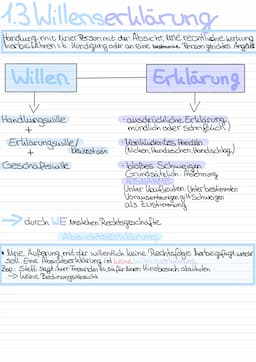 1.3 Willenserklärung
Handlung mit einer Person mit der Absicht, eine rechtliche Wirkung
herbeiführen z.b. Kündigung oder an eine bestimmte Person gerichtes Angebot
Willen Erklärung
Handlungswille
+
Erklärungswille/
Bewusstsein
+
Geschäftswille
- ausdrückliche Erklärung
mündlich oder schriftlich)
- Konkludentes Handeln
(Nicken, Handzeichen, Handschlag)
- bloßes Schweigen
Grundsätzlich: Ablehnung
AUSNAHME:
Unter Kaufleuten: Unter bestimmten
Voraussetzungen gilt Schweigen
als Zustimmung
→ durch WE entstehen Rechtsgeschäfte
• Eine Äußerung mit der willentlich keine Rechtsfolge herbeigeführt werden
soll. Eine Absichtserklärung ist keine Willenserklärung.
Bsp.: Steffi sagt ihrer Freundin zu, sie für einen Kinobesuch abzuholen